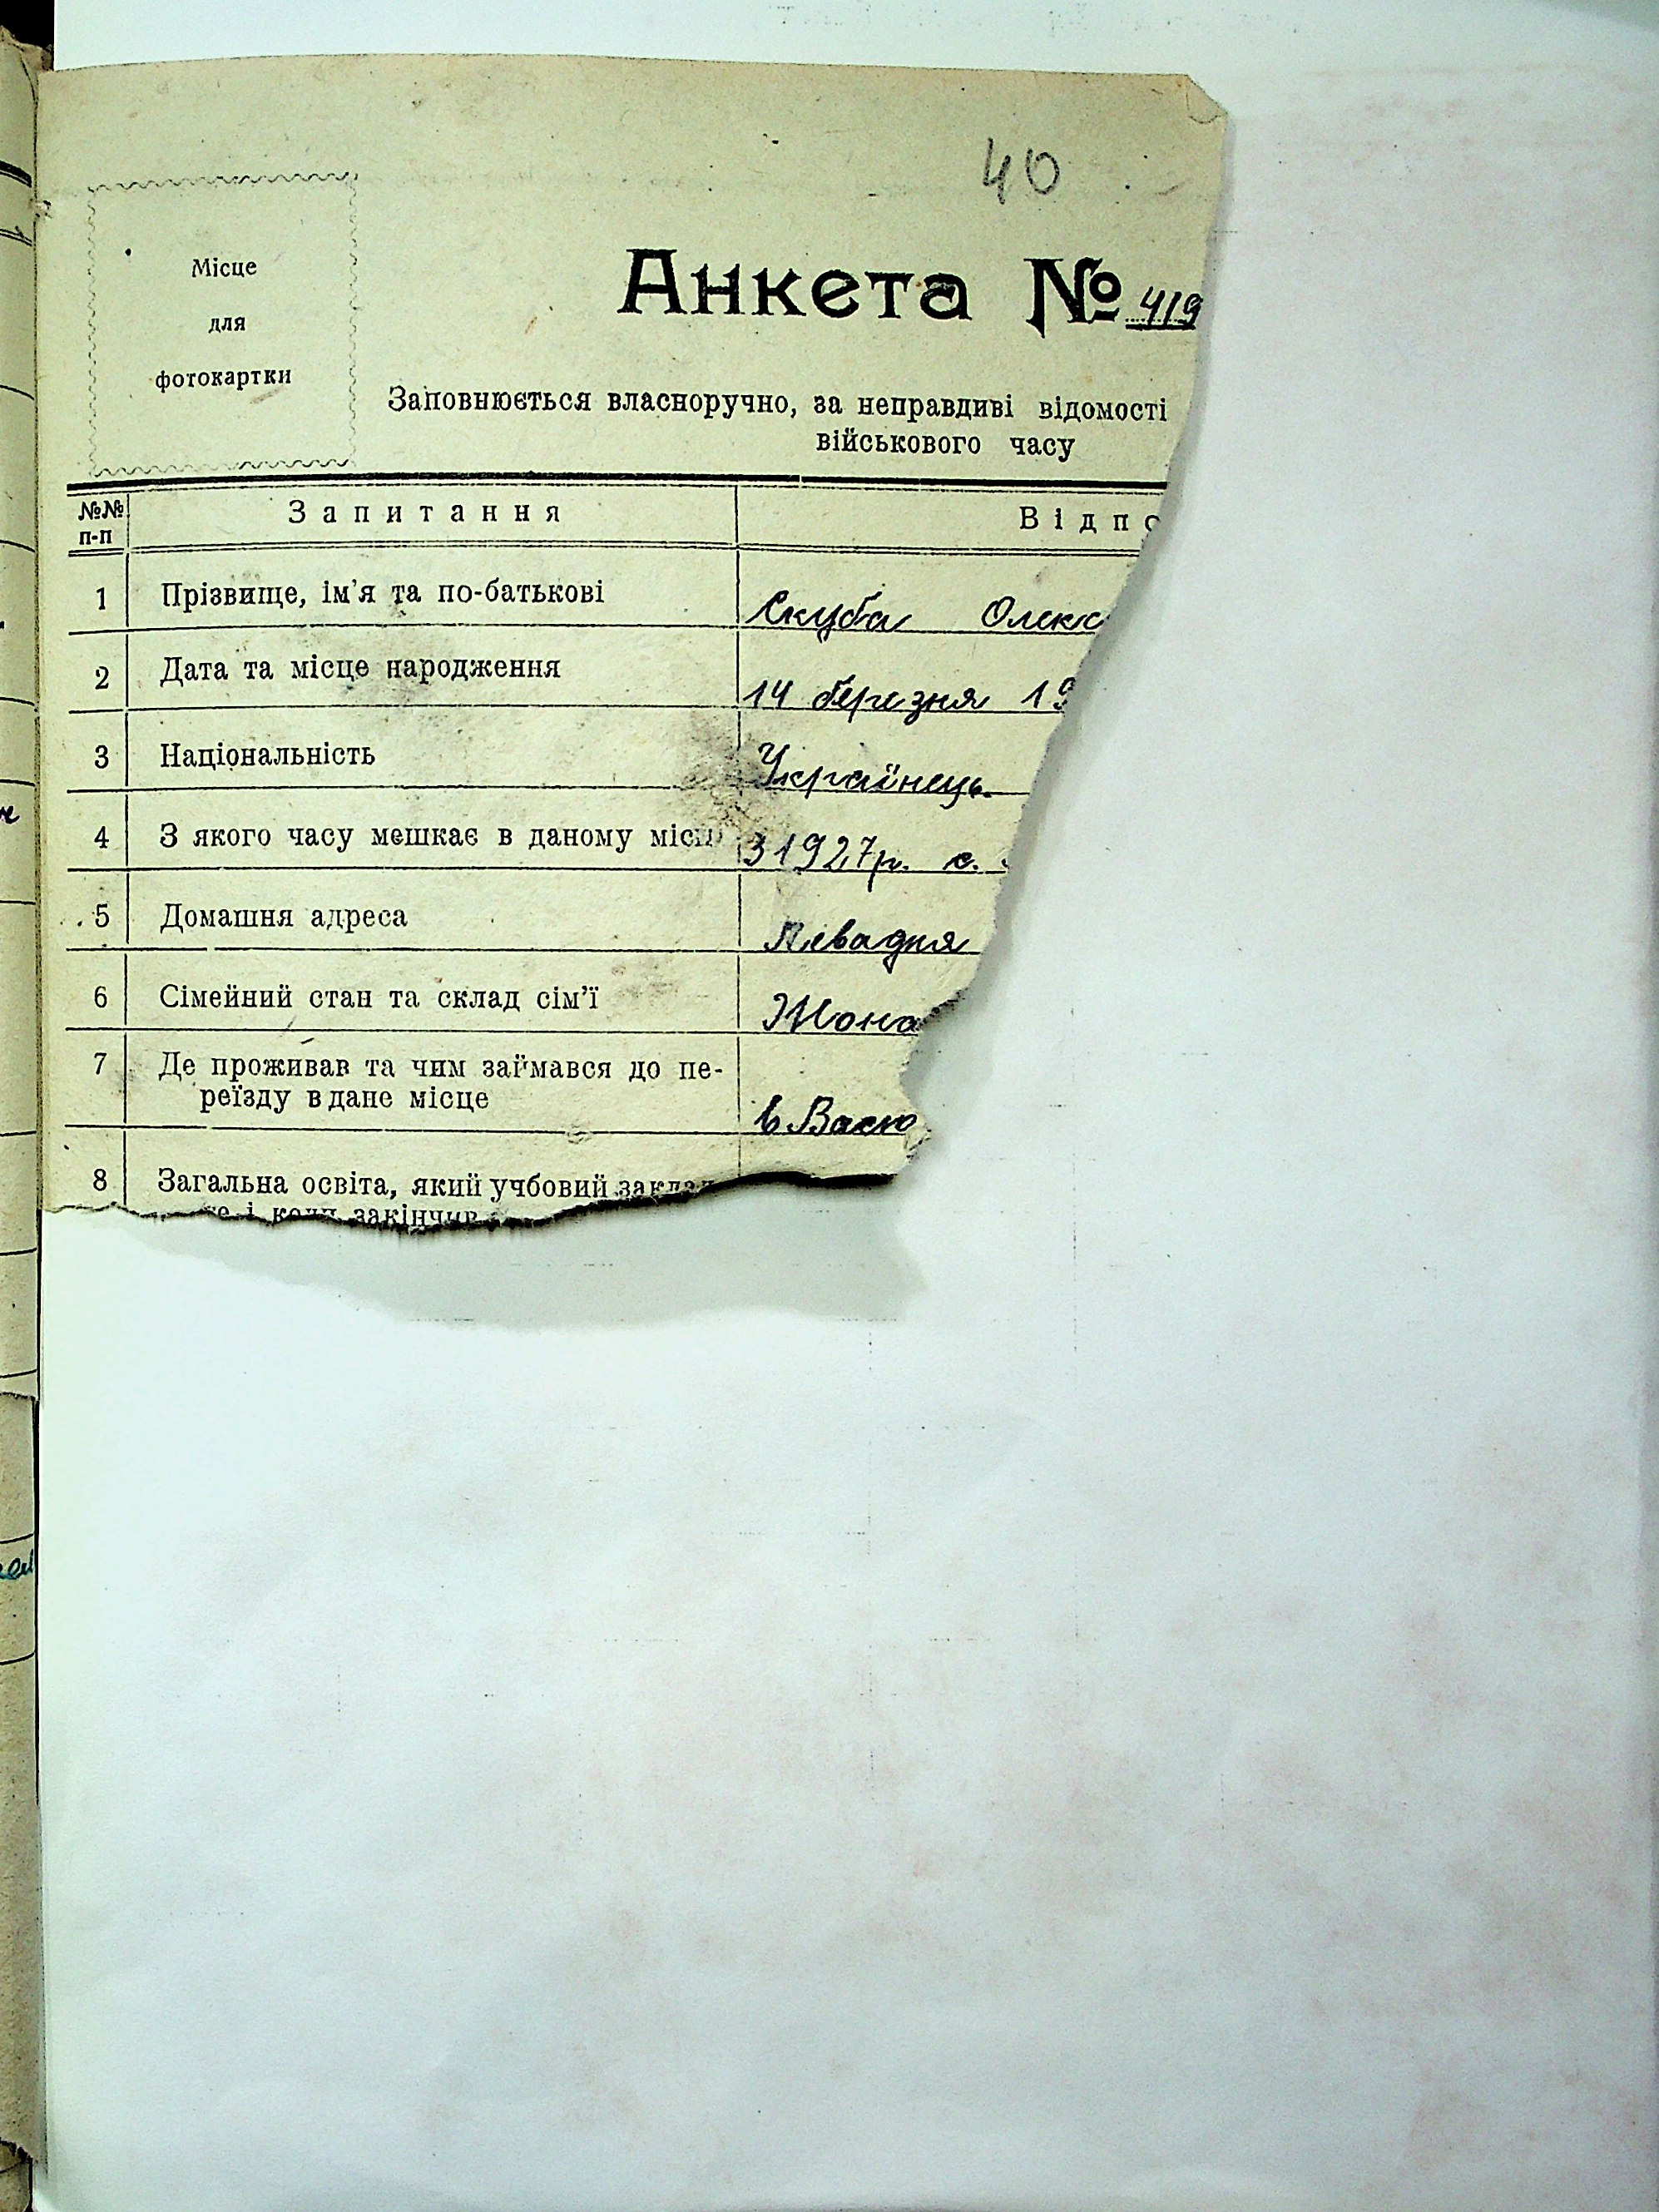 40
Місце
для
фотокартки
Анкета № 419
Заповнюється власноручно, за неправдиві відомості
військового часу
№№ п-п Запитання Відпо
1 Прізвище, ім'я та по-батькові Скуба Олекс
2 Дата та місце народження 14 березня 19
3 Національність Українець.
4 З якого часу мешкає в даному місці З 1927р. с.
5 Домашня адреса Левадня
6 Сімейний стан та склад сім'ї Жона
7 Де проживав та чим займався до пе-
реїзду в дане місце в Васю
8 Загальна освіта, який учбовий заклад
і коли закінчив